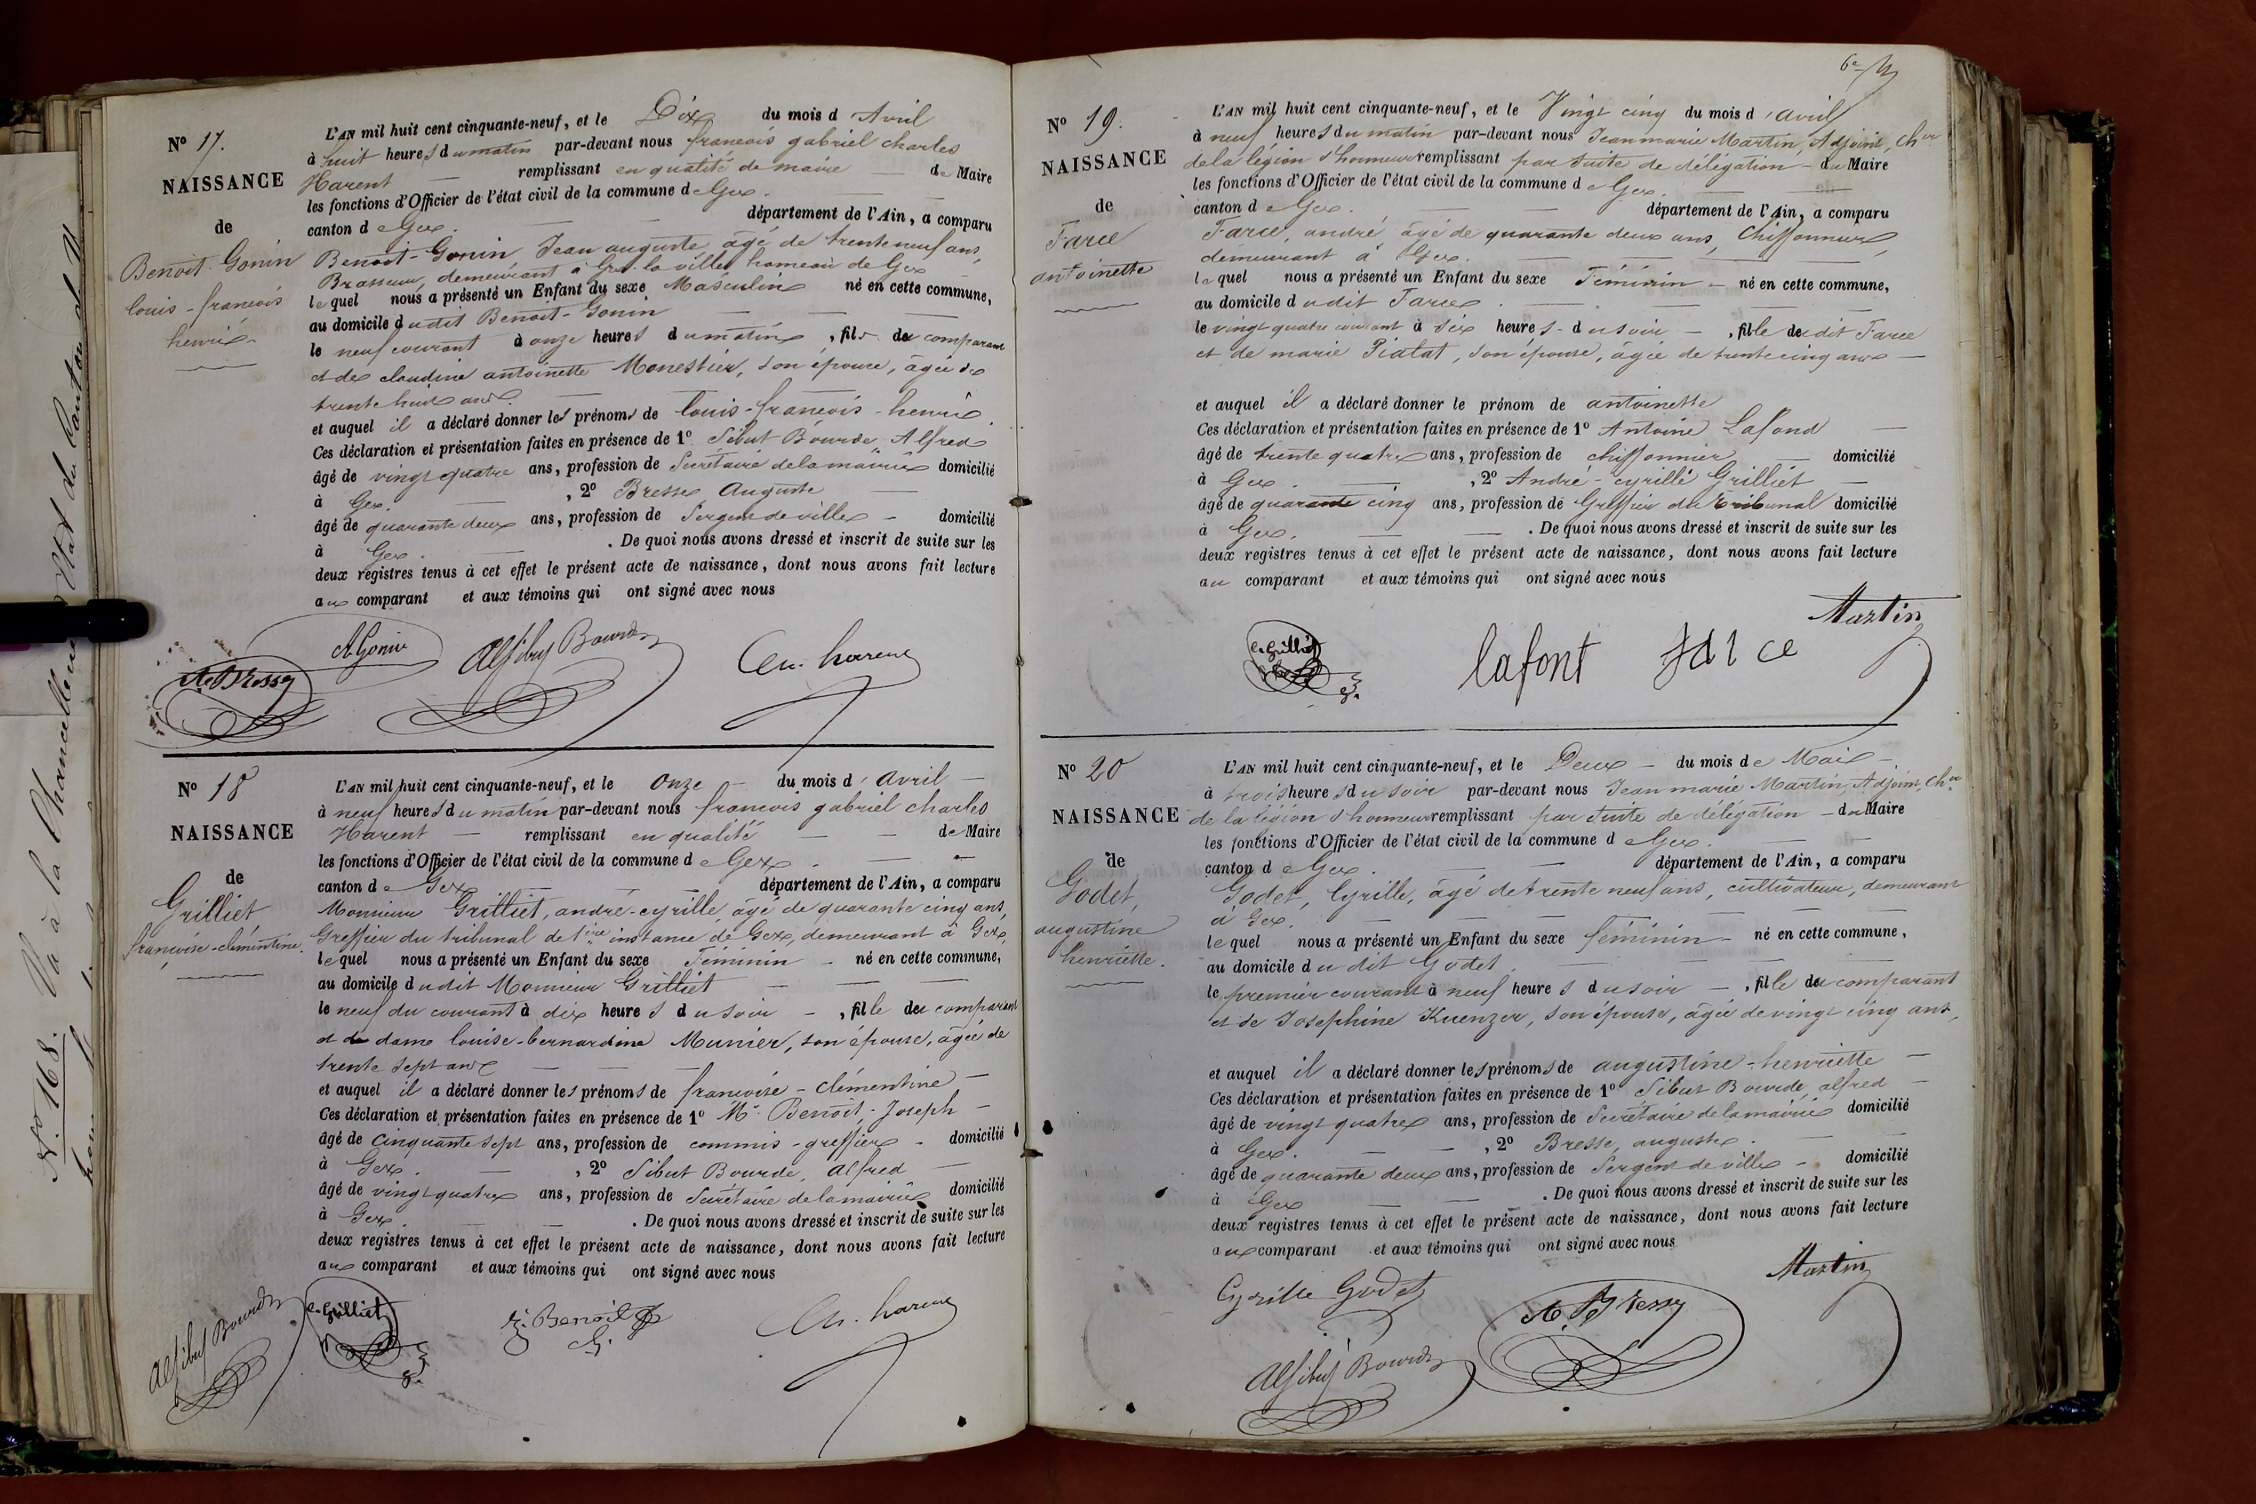 Nº 17.
NAISSANCE
de
Benoit-Gonin
louis-francois
henri
L'AN mil huit cent cinquante-neuf, et le Dix du mois d'Avril
à huit heures du matin par-devant nous francois gabriel charles
Harent remplissant en qualité de maire de Maire
les fonctions d'Officier de l'état civil de la commune de Gex.
canton de Gex. département de l'Ain, a comparu
Benoit-Gonin, Jean auguste, âgé de trente neuf ans,
Brasseur, demeurant à la ville hameau de Gex
lequel nous a présenté un Enfant du sexe Masculin né en cette commune,
au domicile dudit Benoit-Gonin
le neuf courant à onze heures du matin, fils du comparant
et de claudine antoinette Monestier, son épouse, âgée de
trente huit ans.
et auquel il a déclaré donner les prénoms de louis-francois-henri
Ces déclaration et présentation faites en présence de 1º Sibut Bourde, Alfred
âgé de vingt quatre ans, profession de Secrétaire de la mairie domicilié
à Gex. , 2º Bresse, Auguste
âgé de quarante deux ans, profession de Sergent de ville domicilié
à Gex. . De quoi nous avons dressé et inscrit de suite sur les
deux registres tenus à cet effet le présent acte de naissance, dont nous avons fait lecture
aux comparant et aux témoins qui ont signé avec nous
A Gonin
A. Bresse
Al Sibut Bourde
Ch. harent
Nº 18
NAISSANCE
de
Grilliet
françoise-clémentine.
L'AN mil huit cent cinquante-neuf, et le onze du mois d'avril
à neuf heures du matin par-devant nous francois gabriel charles
Harent remplissant en qualité de Maire
les fonctions d'Officier de l'état civil de la commune de Gex.
canton de Gex département de l'Ain, a comparu
Monsieur Grilliet, andré-cyrille, âgé de quarante cinq ans,
Greffier du tribunal de 1ère instance de Gex, demeurant à Gex,
lequel nous a présenté un Enfant du sexe Féminin né en cette commune,
au domicile dudit Monsieur Grilliet
le neuf du courant à dix heures du soir, fille du comparant
et de dame louise-bernardine Munier, son épouse, âgée de
trente sept ans
et auquel il a déclaré donner les prénoms de françoise-clémentine
Ces déclaration et présentation faites en présence de 1º Mr Benoit, Joseph
âgé de cinquante sept ans, profession de commis-greffier domicilié
à Gex. , 2º Sibut Bourde, alfred
âgé de vingt quatre ans, profession de Secrétaire de la mairie domicilié
à Gex. . De quoi nous avons dressé et inscrit de suite sur les
deux registres tenus à cet effet le présent acte de naissance, dont nous avons fait lecture
aux comparant et aux témoins qui ont signé avec nous
Al Sibut Bourde
C. Grilliet
J. Benoit
Ch. harent
Nº 19.
NAISSANCE
de
Farce
antoinette
L'AN mil huit cent cinquante-neuf, et le Vingt cinq du mois d'avril
à neuf heures du matin par-devant nous Jean marie Martin, Adjoint, Cher
de la légion d'honneur remplissant par suite de délégation du Maire
les fonctions d'Officier de l'état civil de la commune de Gex.
canton de Gex. département de l'Ain, a comparu
Farce, andré âgé de quarante deux ans, Chiffonnier,
demeurant à Gex.
lequel nous a présenté un Enfant du sexe Féminin né en cette commune,
au domicile dudit Farce.
le vingt quatre courant à six heures du soir, fille dudit Farce
et de marie Pialat, son épouse, âgée de trente cinq ans
et auquel il a déclaré donner le prénom de antoinette
Ces déclaration et présentation faites en présence de 1º Antoine Lafond
âgé de trente quatre ans, profession de chiffonnier domicilié
à Gex. , 2º André-cyrille Grilliet
âgé de quarante cinq ans, profession de Greffier du tribunal domicilié
à Gex. . De quoi nous avons dressé et inscrit de suite sur les
deux registres tenus à cet effet le présent acte de naissance, dont nous avons fait lecture
au comparant et aux témoins qui ont signé avec nous
C. Grilliet
lafont
farce
Martin
Nº 20
NAISSANCE
de
Godet,
augustine
henriette.
L'AN mil huit cent cinquante-neuf, et le Deux du mois de Mai
à trois heures du soir par-devant nous Jean marie Martin, Adjoint, Cher
de la légion d'honneur remplissant par suite de délégation du Maire
les fonctions d'Officier de l'état civil de la commune de Gex.
canton de Gex. département de l'Ain, a comparu
Godet, Cyrille, âgé de trente neuf ans, cultivateur, demeurant
à Gex.
lequel nous a présenté un Enfant du sexe féminin né en cette commune,
au domicile dudit Godet.
le premier courant à neuf heures du soir, fille du comparant
et de Josephine Kuenzer, son épouse, âgée de vingt cinq ans,
et auquel il a déclaré donner les prénoms de augustine-henriette
Ces déclaration et présentation faites en présence de 1º Sibut Bourde, alfred
âgé de vingt quatre ans, profession de Secrétaire de la mairie domicilié
à Gex. , 2º Bresse, auguste.
âgé de quarante deux ans, profession de Sergent de ville domicilié
à Gex . De quoi nous avons dressé et inscrit de suite sur les
deux registres tenus à cet effet le présent acte de naissance, dont nous avons fait lecture
aux comparant et aux témoins qui ont signé avec nous
Cyrille Godet
A. Bresse
Martin
Al Sibut Bourde
Nº 168. Vu à la Chancellerie